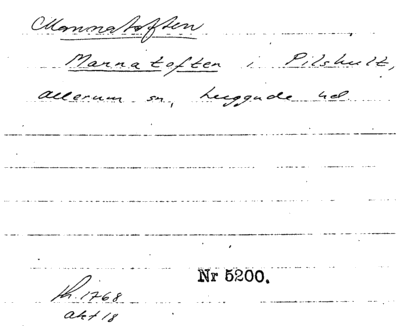 Mannatoften
Mannatoften i Pilshult,
Allerum sn, Luggude hd
Nr 5200.
Lh. 1768
akt 18